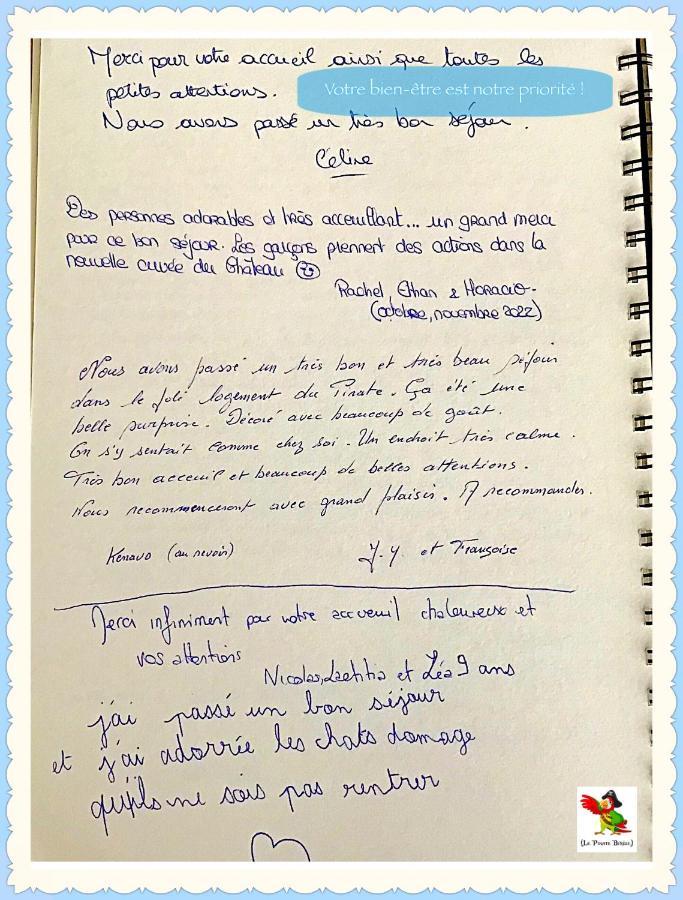 Merci pour votre accueil ainsi que toutes les
petites attentions.
Votre bien-être est notre priorité !
Nous avons passé un très bon séjour.
Céline
Des personnes adorables et très acceuillant... un grand merci
pour ce bon séjour. Les garçons prennent des actions dans la
nouvelle cuvée du Château
Rachel, Ethan & Horacio.
(octobre, novembre 2022)
Nous avons passé un très bon et très beau séjour
dans le joli logement du Pirate. Ça été une
belle surprise. Décoré avec beaucoup de goût.
On s'y sentait comme chez soi. Un endroit très calme.
Très bon acceuil et beaucoup de belles attentions.
Nous recommenceront avec grand plaisir. A recommander.
Kenavo (au revoir)
J.Y. et Françoise
Merci infiniment par votre accueuil chaleureux et
vos attentions
Nicolas, Laetitia et Léa 9 ans
j'ai passé un bon séjour
et j'ai adorrée les chats domage
qu'ils ne sois pas rentrer
(Le Pirate Bessas)